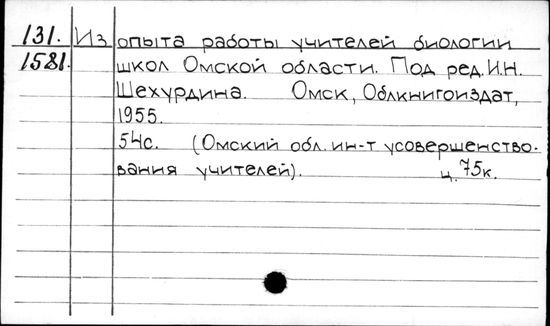 131. Из опыта работы учителей биологии
1581. школ Омской области. Под ред. И.Н.
Шехурдина. Омск, Облкнигоиздат,
1955.
54с. (Омский обл. ин-т усовершенство-
вания учителей). ц. 75к.